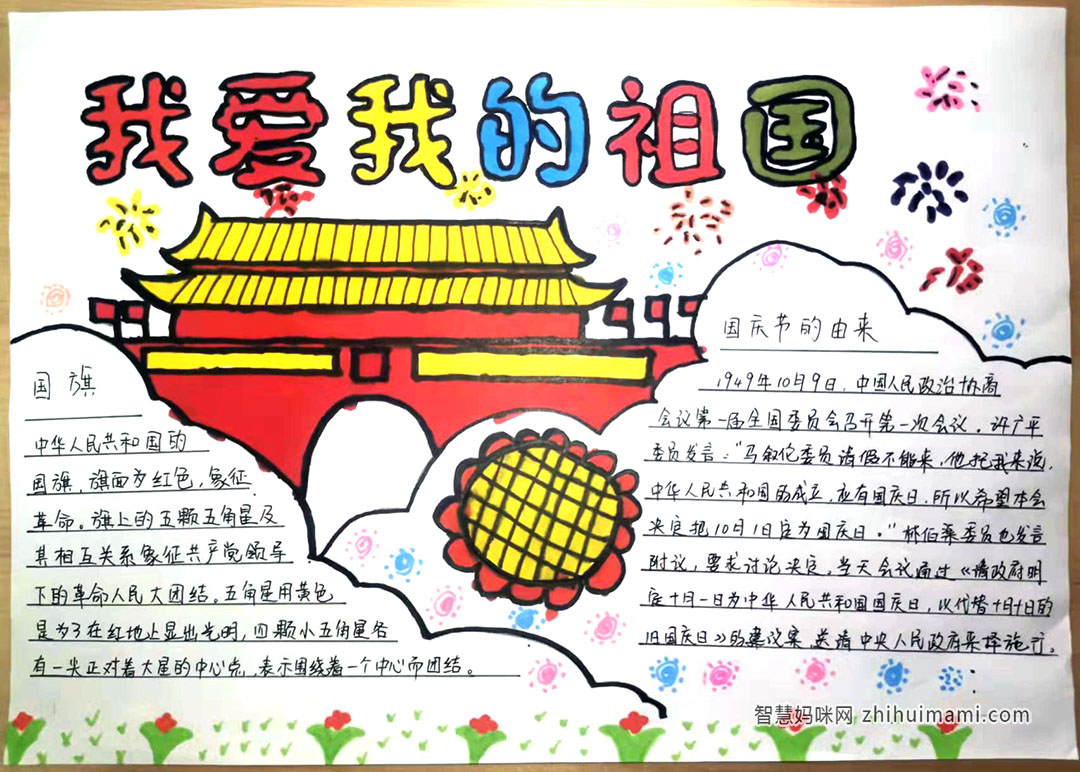 我爱我的祖国
国旗
中华人民共和国的
国旗，旗面为红色，象征
革命。旗上的五颗五角星及
其相互关系象征共产党领导
下的革命人民大团结。五角星用黄色
是为了在红地上显出光明，四颗小五角星各
有一尖正对着大星的中心点，表示围绕着一个中心而团结。
国庆节的由来
1949年10月9日，中国人民政治协商
会议第一届全国委员会召开第一次会议。许广平
委员发言："马叙伦委员请假不能来，他托我来说，
中华人民共和国的成立，应有国庆日，所以希望本会
决定把10月1日定为国庆日。"林伯渠委员也发言
附议，要求讨论决定。当天会议通过《请政府明
定十月一日为中华人民共和国国庆日，以代替十月十日的
旧国庆日》的建议案，送请中央人民政府采择施行。
智慧妈咪网 zhihuimami.com